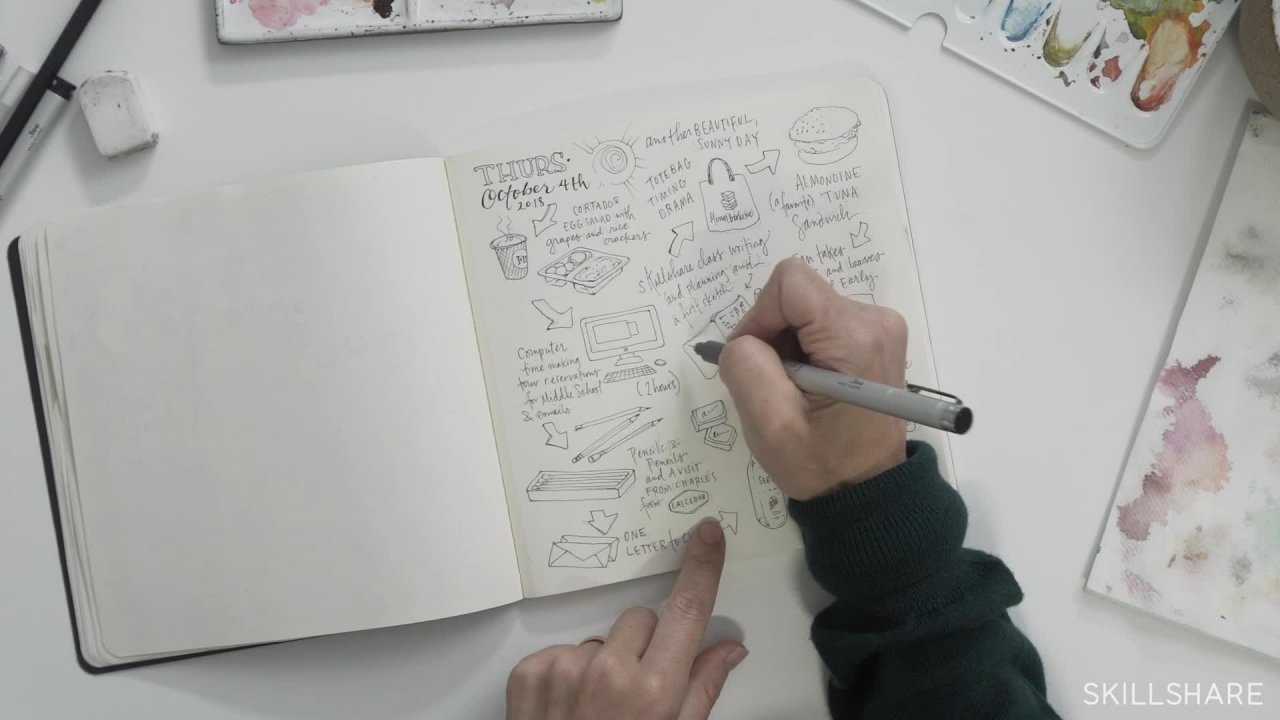 THURS.
October 4th
2018
CORTADO
EGG SALAD with
grapes and rice
crackers
Computer
time making
tour reservations
for Middle School
& emails
(2 hours)
Pencils &
Pencils
and A VISIT
FROM CHARLES
from CALCEDAR
ONE
LETTER to
skillshare class writing
and planning and
a first sketch
TOTEBAG
TIMING
DRAMA
another BEAUTIFUL,
SUNNY DAY
ALMONDINE
(a favorite) TUNA
Sandwich
takes
and leaves
Early
SKILLSHARE